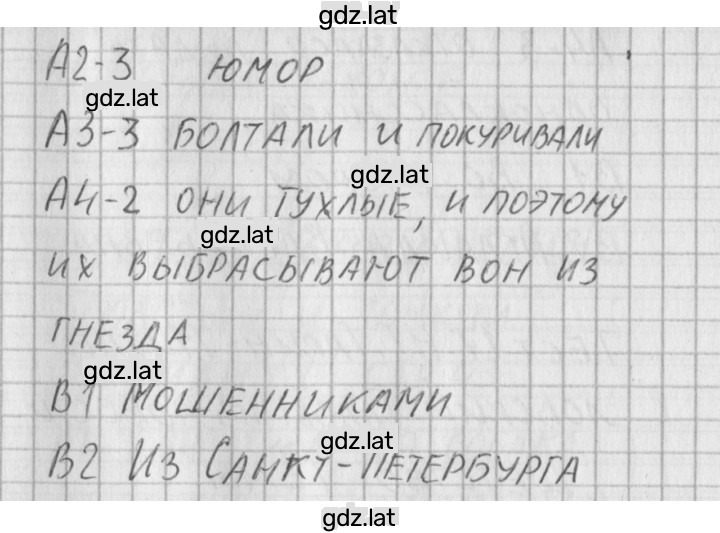 gdz.lat
А2-3 ЮМОР
gdz.lat
А3-3 БОЛТАЛИ И ПОКУРИВАЛИ
gdz.lat
А4-2 ОНИ ТУХЛЫЕ, И ПОЭТОМУ
gdz.lat
ИХ ВЫБРАСЫВАЮТ ВОН ИЗ
ГНЕЗДА
gdz.lat
В1 МОШЕННИКАМИ
gdz.lat
В2 ИЗ САНКТ-ПЕТЕРБУРГА
gdz.lat